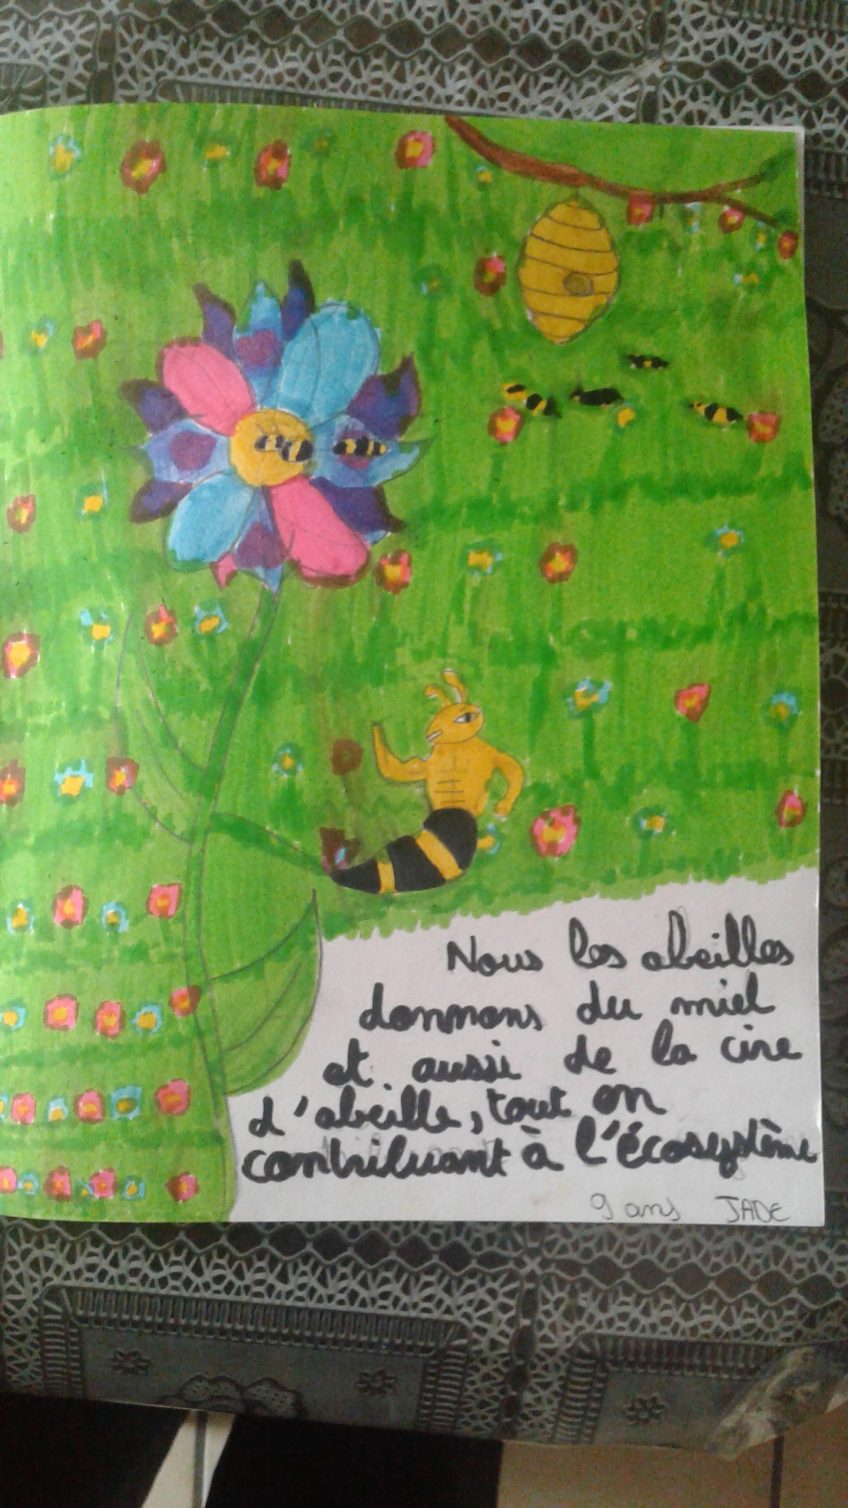 Nous les abeilles
donnons du miel
et aussi de la cire
d'abeille, tout en
contribuant à l'écosystème
9 ans JADE